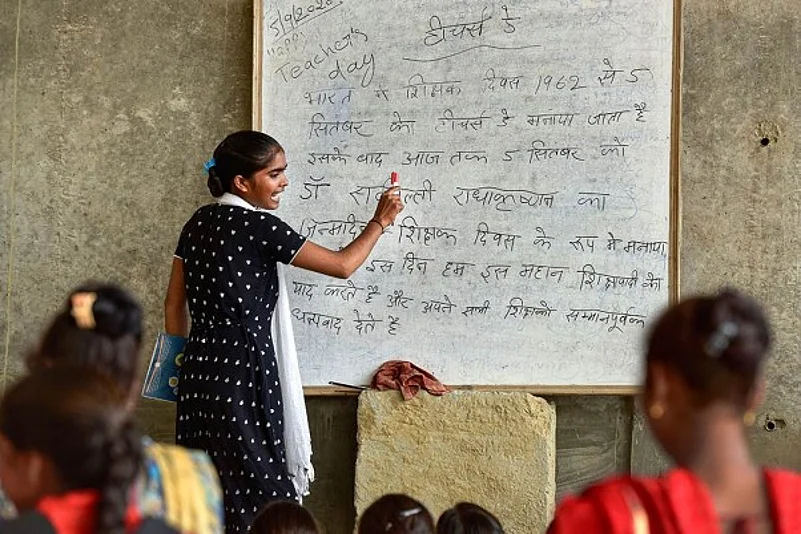 5/9/2020
Teacher's
day
टीचर्स डे
भारत में शिक्षक दिवस 1962 से 5
सितंबर को टीचर्स डे मनाया जाता है
इसके बाद आज तक 5 सितंबर को
डॉ राधाकृष्णन का
जन्मदिन शिक्षक दिवस के रूप मे मनाया
इस दिन हम इस महान को
याद करते है और अपने सभी शिक्षकों सम्मानपूर्वक
धन्यवाद देते है